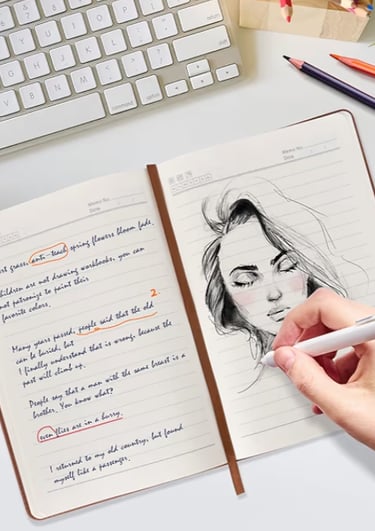 return
shift
command
option
Memo No.
Date
Memo No.
Date
grass, anti-teach spring flowers bloom fade.
children are not drawing workbooks, you can
not patronize to paint their
favorite colors.
2.
Many years passed, people said that the old
can be buried, but
I finally understand that is wrong, because the
past will climb up.
People say that a man with the same breast is a
brother. You know what?
even flies are in a hurry.
I returned to my old country, but found
myself like a passenger.